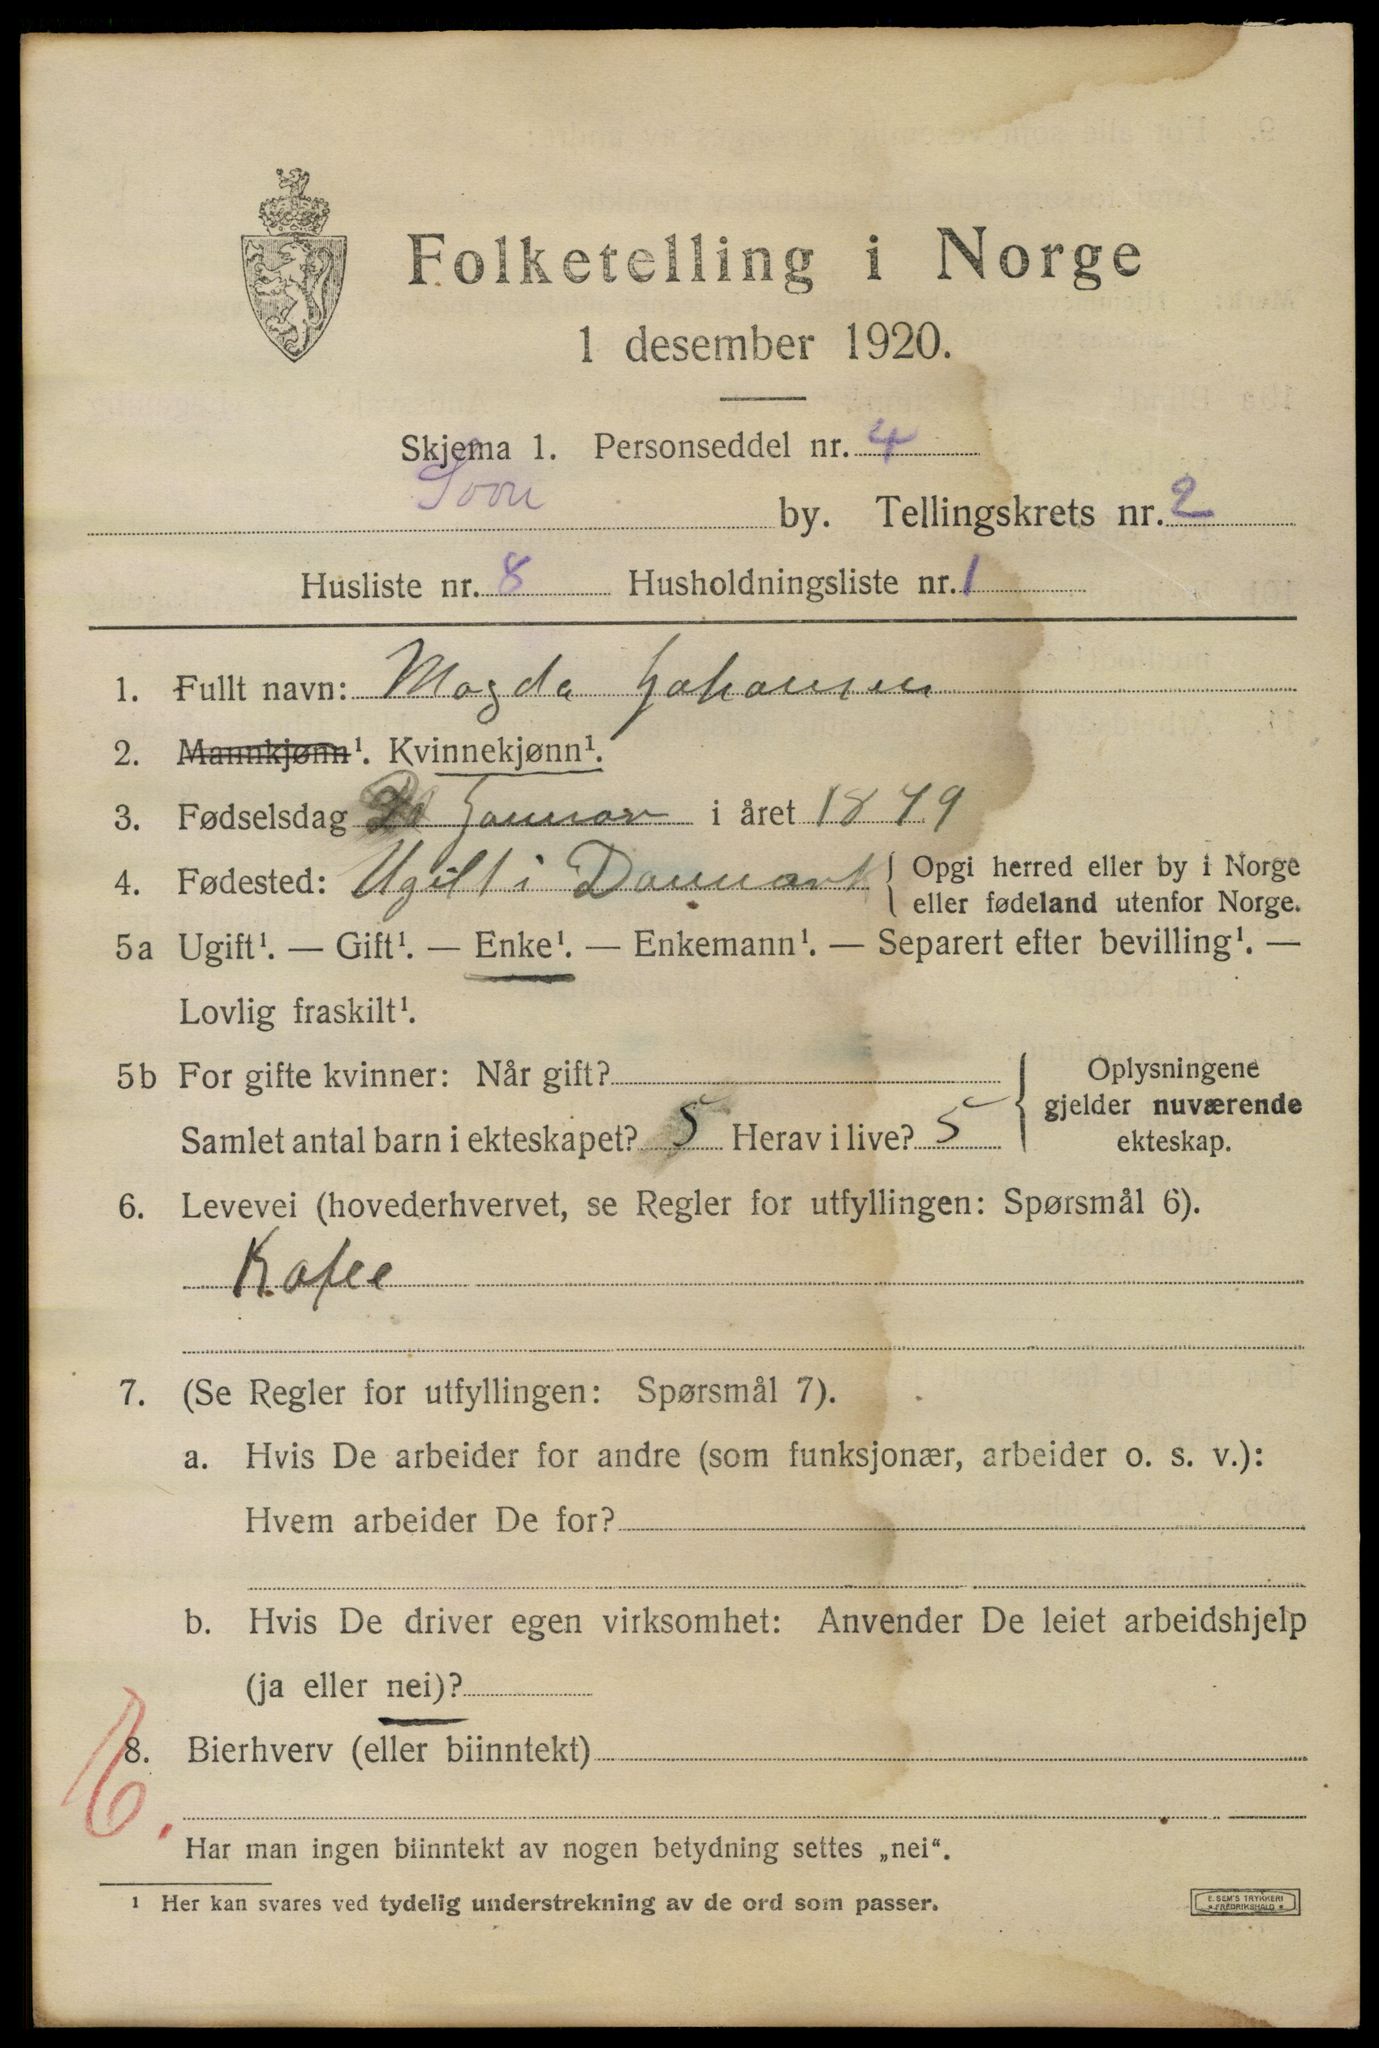 Folketelling i Norge
1 desember 1920.
Skjema 1. Personseddel nr. 4
Soon by. Tellingskrets nr. 2
Husliste nr. 8 Husholdningsliste nr. 1
1. Fullt navn: Magda Johansen
2. Mannkjønn¹. Kvinnekjønn¹.
3. Fødselsdag Januar i året 1879
4. Fødested: Ugilt i Danmark { Opgi herred eller by i Norge
eller fødeland utenfor Norge.
5a Ugift¹. — Gift¹. — Enke¹. — Enkemann¹. — Separert efter bevilling¹. —
Lovlig fraskilt¹.
5b For gifte kvinner: Når gift? { Oplysningene
gjelder nuværende
Samlet antal barn i ekteskapet? 5 Herav i live? 5 ekteskap.
6. Levevei (hovederhvervet, se Regler for utfyllingen: Spørsmål 6).
Kafee
7. (Se Regler for utfyllingen: Spørsmål 7).
a. Hvis De arbeider for andre (som funksjonær, arbeider o. s. v.):
Hvem arbeider De for?
b. Hvis De driver egen virksomhet: Anvender De leiet arbeidshjelp
(ja eller nei)?
8. Bierhverv (eller biinntekt)
Har man ingen biinntekt av nogen betydning settes „nei“.
¹ Her kan svares ved tydelig understrekning av de ord som passer.
E. SEM'S TRYKKERI
* FREDRIKSHALD *